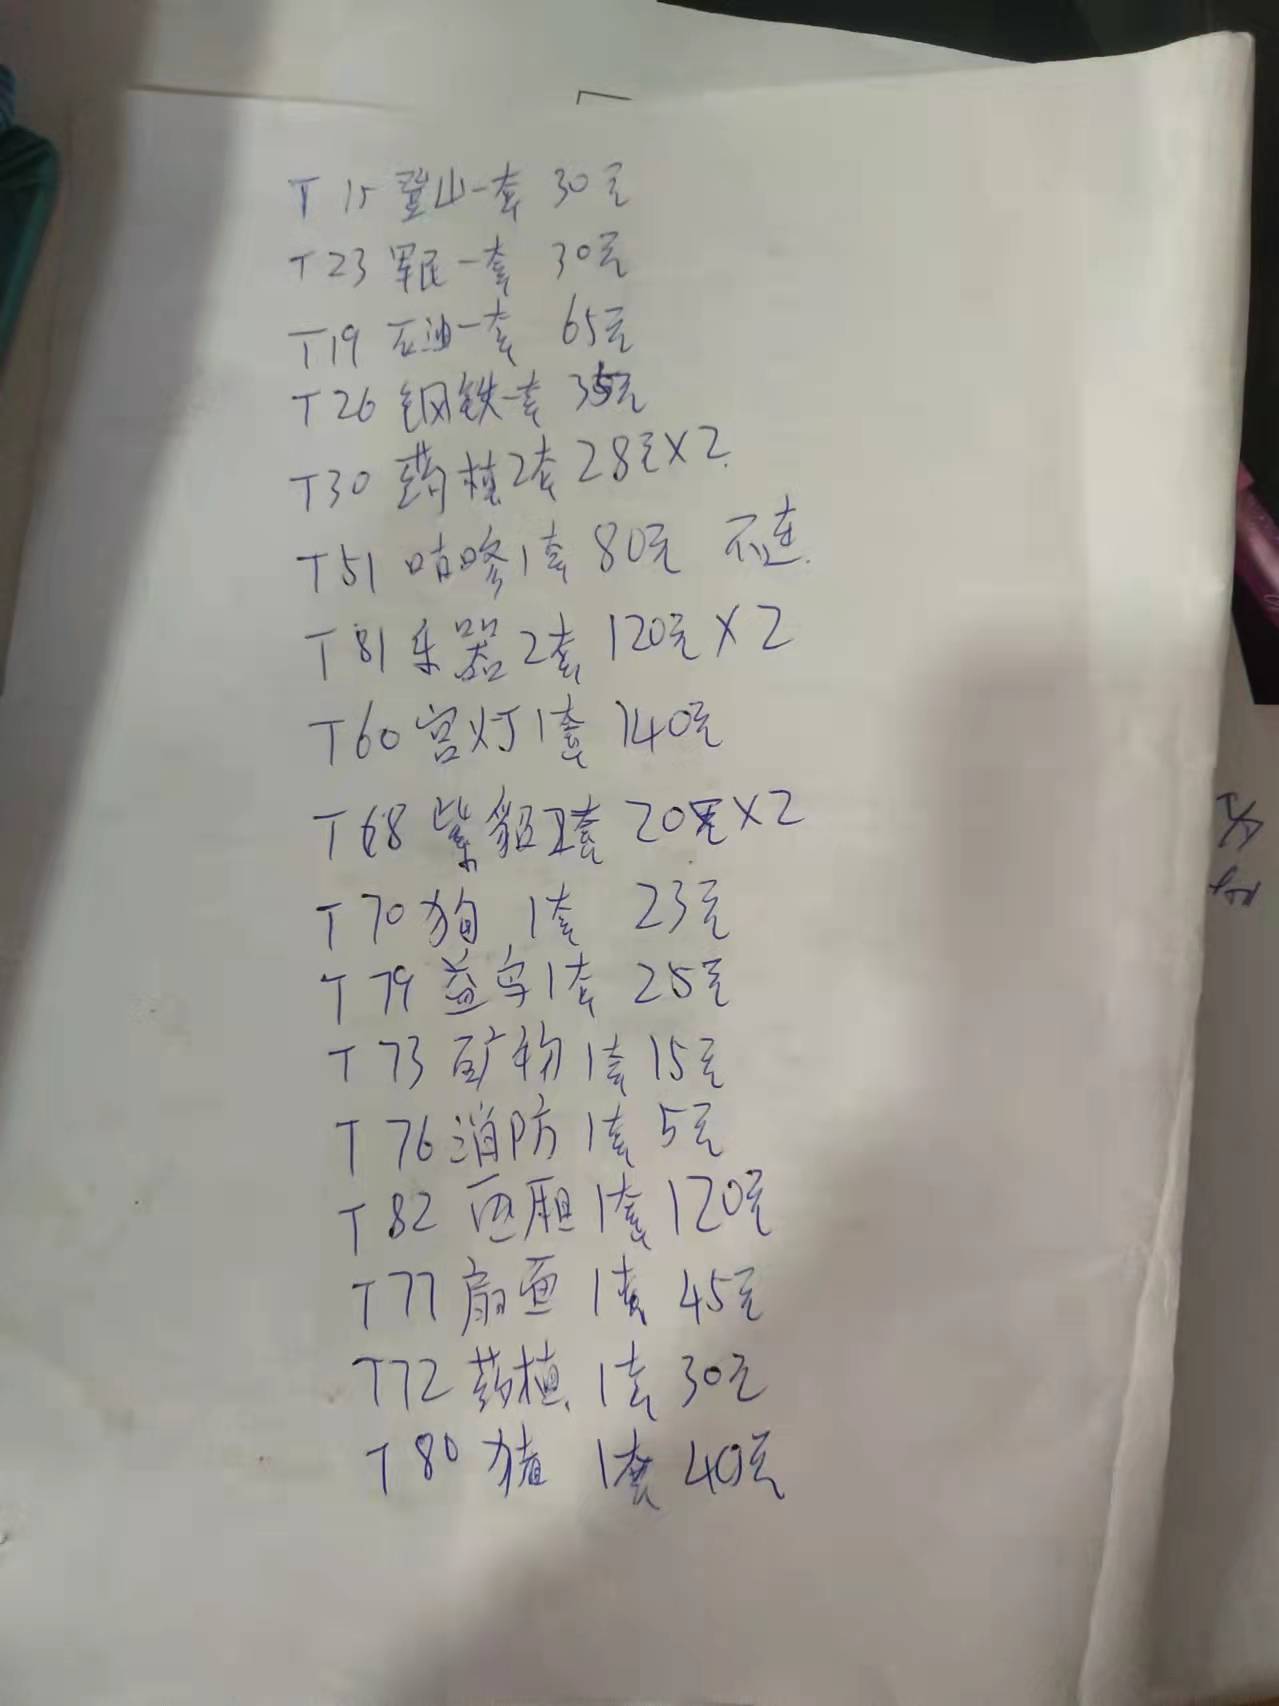 T15 登山一套 30元
T23 军民一套 30元
T19 石油一套 65元
T26 钢铁一套 35元
T30 药植2套 28元×2
T51 咕咚1套 80元 不连.
T81 乐器2套 120元×2
T60 宫灯1套 140元
T68 紫貂2套 20元×2
T70 狗 1套 23元
T79 益鸟1套 25元
T73 矿物1套 15元
T76 消防1套 5元
T82 西厢1套 120元
T77 扇面 1套 45元
T72 药植 1套 30元
T80 猪 1套 40元